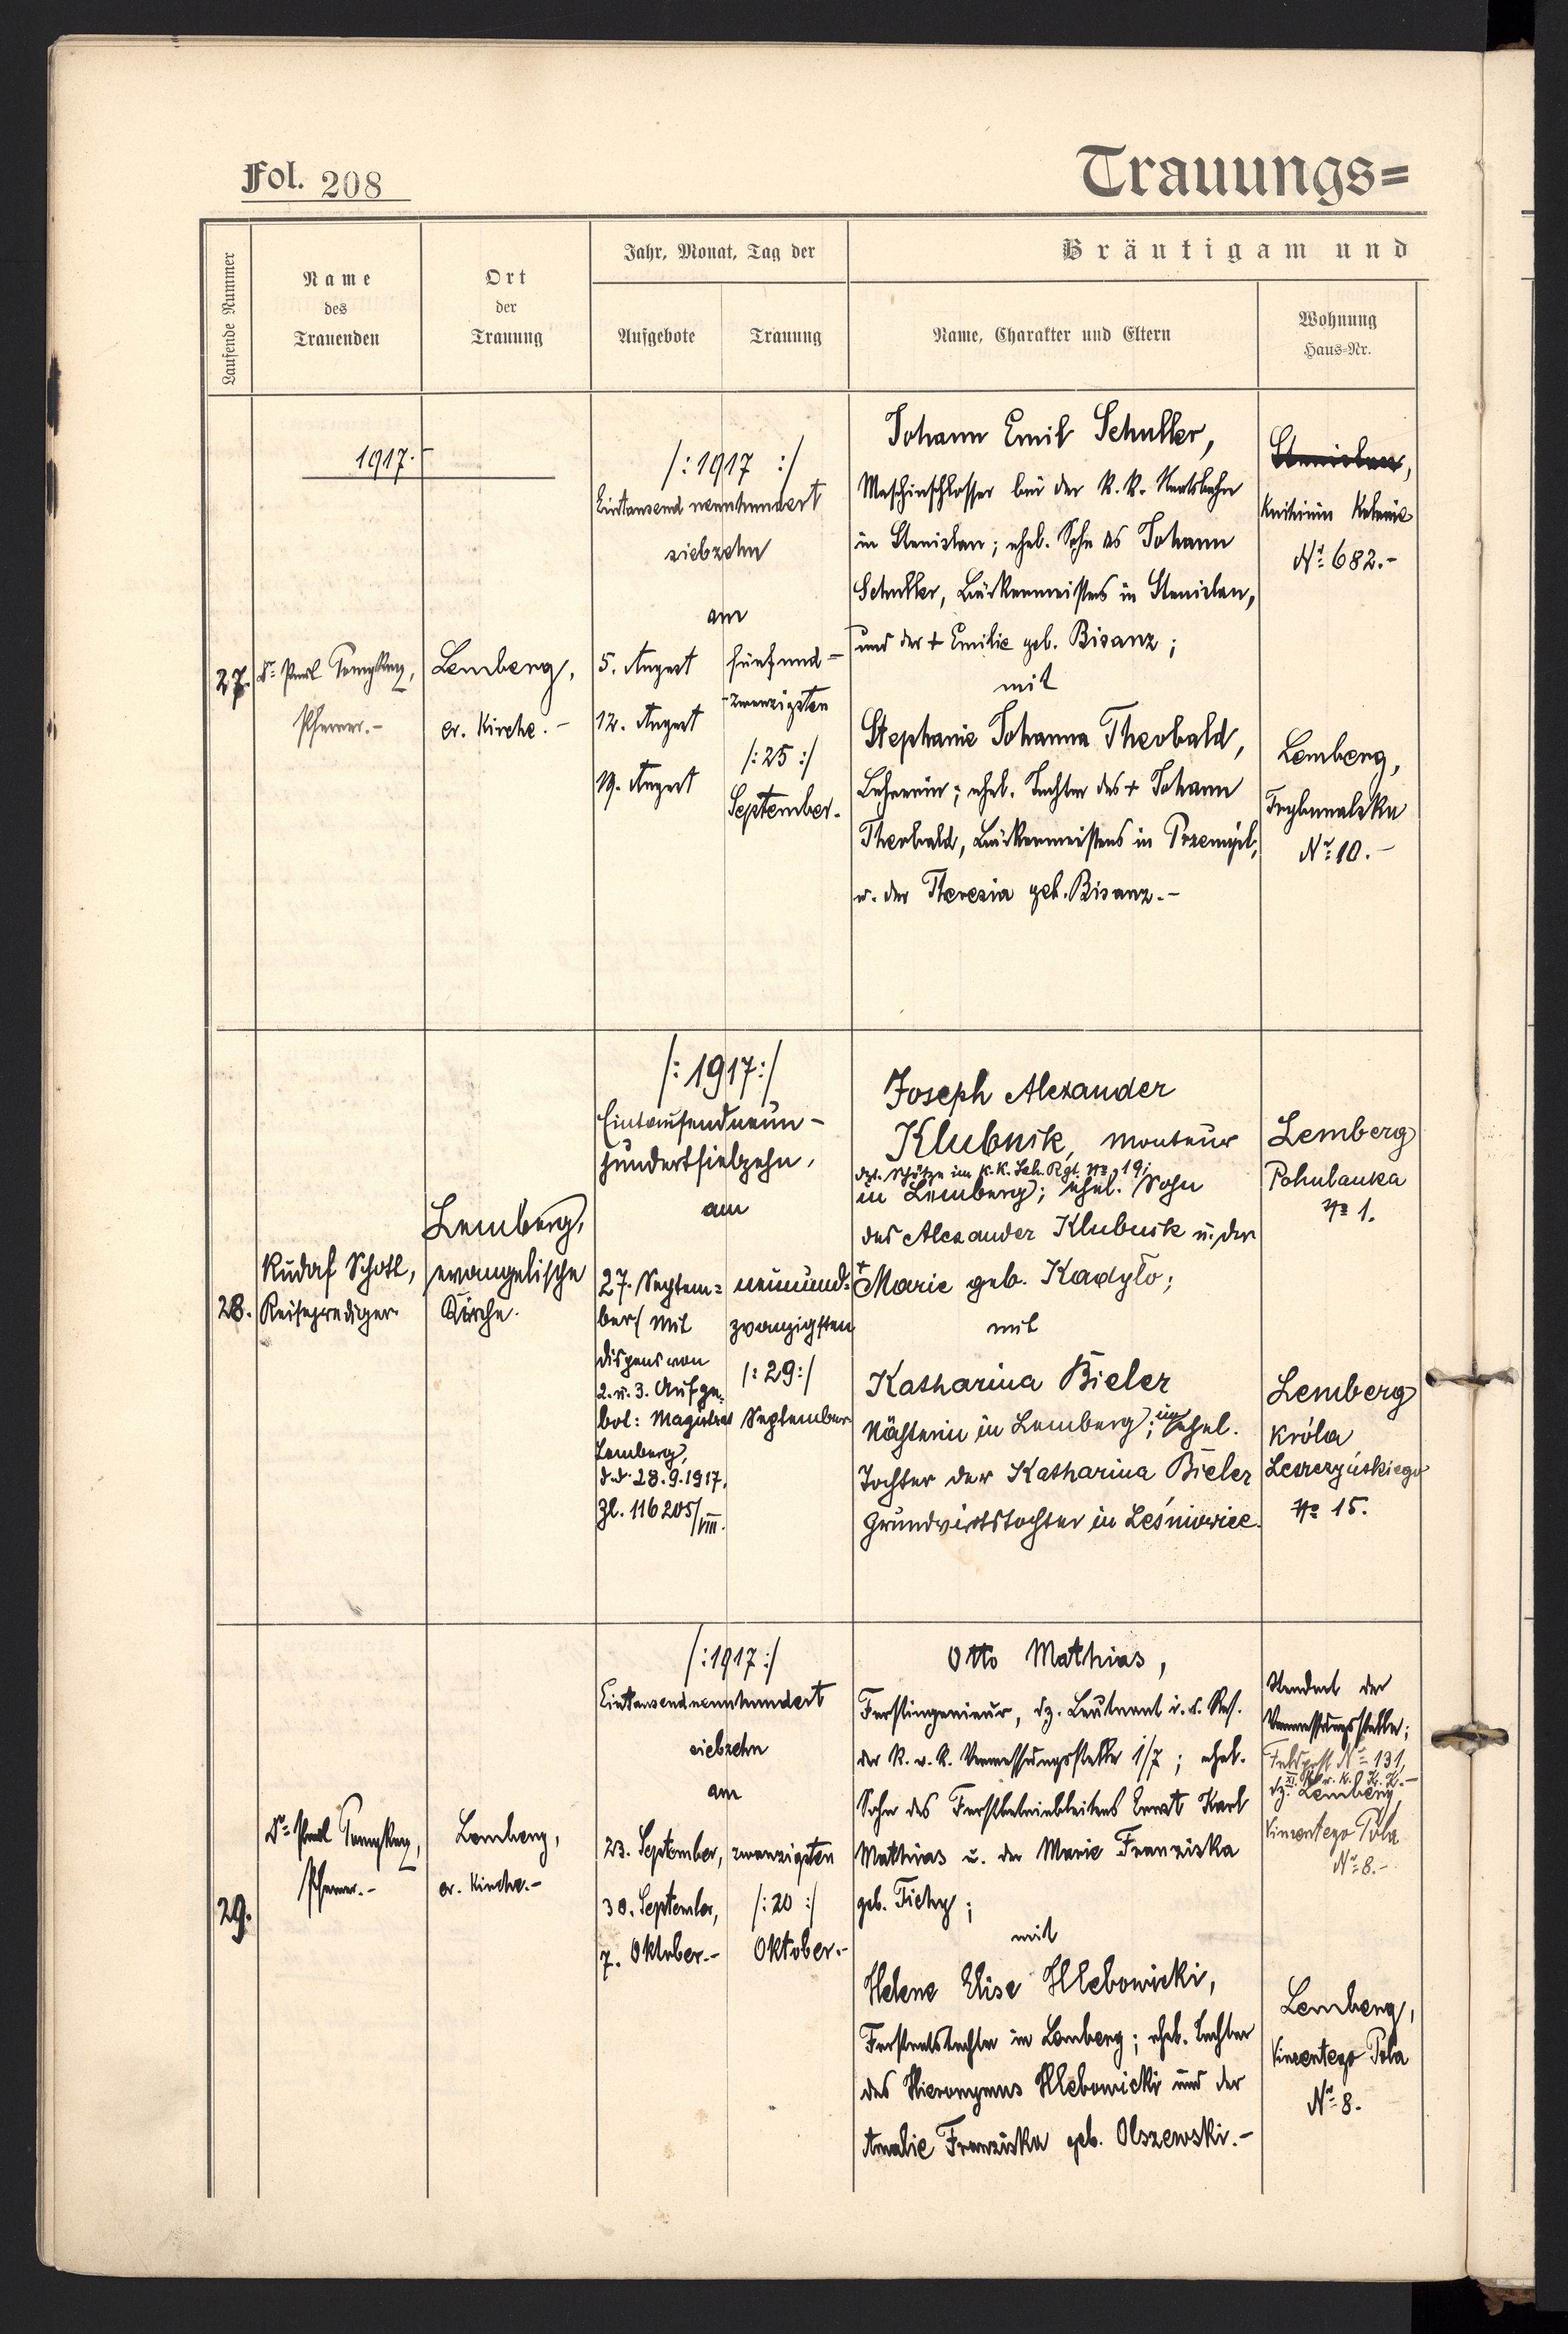 Fol. 208
Trauungs=
Laufende Nummer
Name
des
Trauenden
Ort
der
Trauung
Jahr, Monat, Tag der
Aufgebote
Trauung
Bräutigam und
Name, Charakter und Eltern
Wohnung
Haus=Nr.
1917.-
27.
Dr. Paul
Pfarrer.-
Lemberg,
ev. Kirche.-
/: 1917 :/
Eintausend neunhundert
siebzehn
am
5. August
12. August
19. August
fünfund=
zwanzigsten
/: 25 :/
September.
Johann Emil Schuller,
Maschinschlosser bei der k. k. Staatsbahn
in Stanislau; ehel. Sohn des Johann
Schuller, Bäckermeisters in Stanislau,
und der + Emilie geb. Bisanz;
mit
Stephanie Johanna Theobald,
Lehrerin; ehel. Tochter des + Johann
Theobald, Bäckermeisters in Przemyśl,
u. der Theresia geb. Bisanz.-
Stanislau,
Knihinin Kolonie
Nr. 682.-
Lemberg,
Trybunalska
Nr. 10.-
28.
Rudolf Schott,
Reiseprediger.
Lemberg,
evangelische
Kirche.
/: 1917 :/
Eintausendneun-
hundertsiebzehn,
am
27. Septem=
ber/ mit
Dispens von
2. u. 3. Aufge-
bot: Magistrat
Lemberg,
d.d. 28.9.1917,
Zl. 116205/VIII.
neunund=
zwanzigsten
/: 29 :/
September
Joseph Alexander
Klubnik, Monteur
dzt. Schütze im k.k. Sch. Rgt. No. 19;
in Lemberg; ehel. Sohn
des Alexander Klubnik u. der
+ Marie geb. Kadylo;
mit
Katharina Bieler
Nähterin in Lemberg; unehel.
Tochter der Katharina Bieler
Grundwirtstochter in Leśniowice.
Lemberg
Pohulanka
No 1.
Lemberg
Króla
Leszczyńskiego
No 15.
29.
Dr. Paul
Pfarrer.-
Lemberg,
ev. Kirche.-
/: 1917 :/
Eintausendneunhundert
siebzehn
am
23. September,
30. September,
7. Oktober.-
zwanzigsten
/: 20 :/
Oktober.-
Otto Mathias,
Forstingenieur, dz. Leutnant i. d. Res.
der k. u. k. Vermessungsstelle 1/7; ehel.
Sohn des Forstbetriebleiters Ernst Karl
Mathias u. der Marie Franziska
geb. Tichy;
mit
Helene Elise Hlebowicki,
in Lemberg; ehel. Tochter
des Hieronymus Hlebowicki und der
Amalie Franziska geb. Olszewski.-
Standort der
Vermessungsstelle;
Feldpost No 131,
dz. Lemberg,
Vincentego Pola
No 8.-
Lemberg,
Vincentego Pola
No 8.